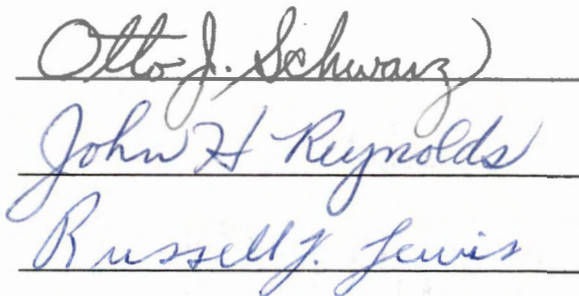 Otto J. Schwarz
John H Reynolds
Russell J. Lewis